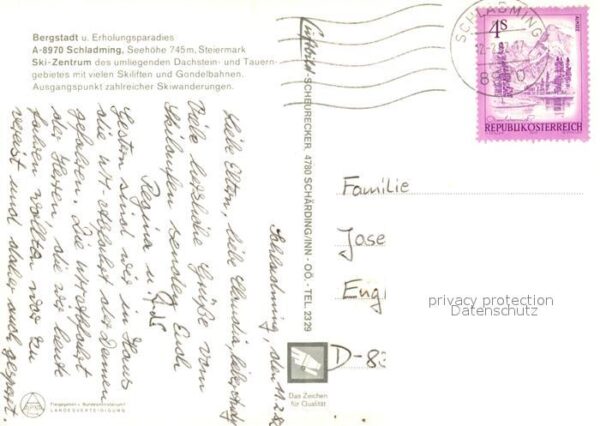 Bergstadt u. Erholungsparadies
A-8970 Schladming, Seehöhe 745m, Steiermark
Ski-Zentrum des umliegenden Dachstein- und Tauern-
gebietes mit vielen Skiliften und Gondelbahnen.
Ausgangspunkt zahlreicher Skiwanderungen.
Schladming, den 11.2.82
Liebe Eltern, liebe Claudia, lieber
Viele herzliche Grüße vom
Skilaufen senden Euch
Regina u.
Gestern sind wir in Haus
die WM-Abfahrt der Damen
gefahren. Die WM-Abfahrt
der Herren, die wir heute
fahren wollten war zu
vereist und daher auch gesperrt.
Freigegeben v. Bundesministerium f.
LANDESVERTEIDIGUNG
Luftbild SCHEURECKER, 4780 SCHÄRDING/INN - OÖ - TEL. 2329
Das Zeichen
für Qualität
SCHLADMING
8970
4 S
REPUBLIK ÖSTERREICH
Familie
Jose
Engl
D-83
privacy protection
Datenschutz